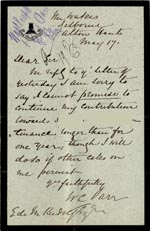 Selborne
Alton Hants
May 17.
Dear Sir
In reply to yr letter of
yesterday I am sorry to
say I cannot promise to
continue my contribution
towards
tenance longer than for
one year; though I will
do so if other calls on
me permit
yrs faithfully
W C Parr
E de M Rudolf Esq